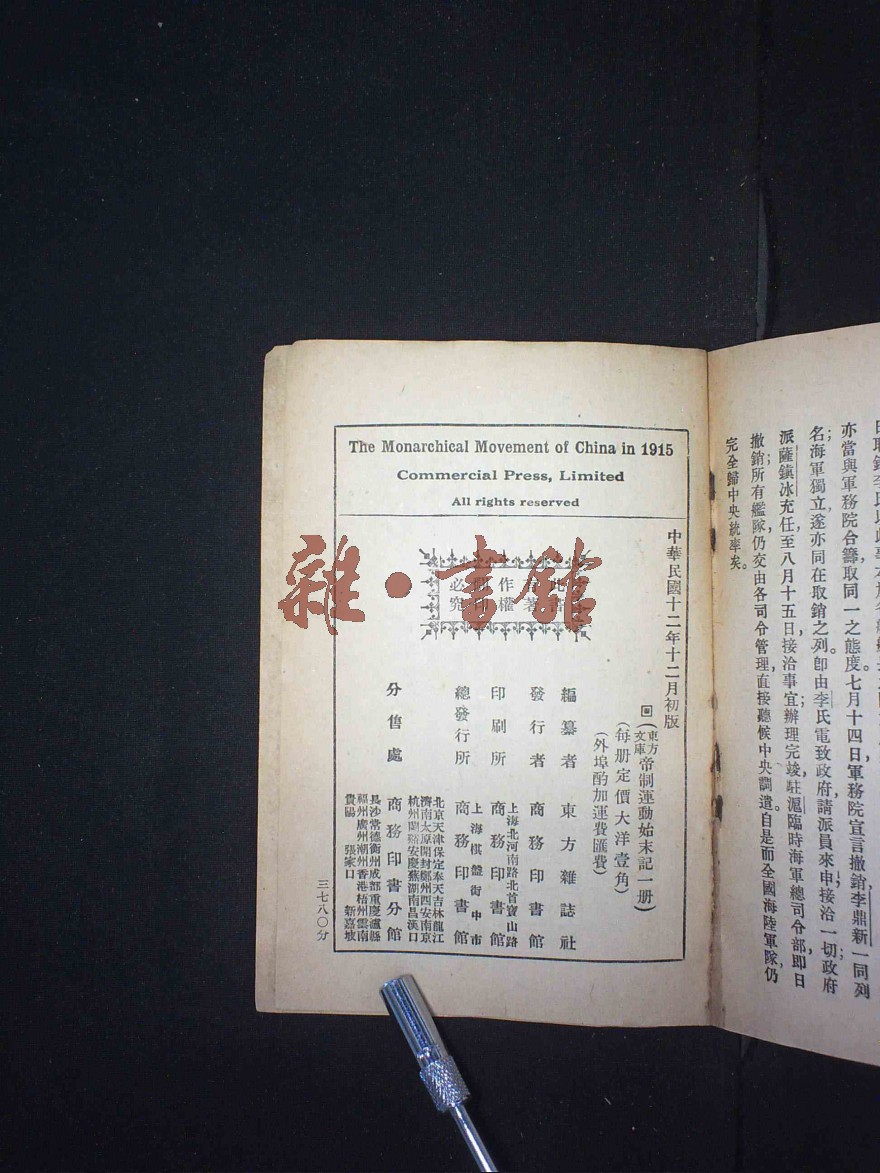 亦當與軍務院合籌取同一之態度七月十四日軍務院宣言撤銷李鼎新一同列
名海軍獨立遂亦同在取銷之列。卽由李氏電致政府請派員來申接洽一切政府
派薩鎮冰充任至八月十五日接洽事宜辦理完竣駐滬臨時海軍總司令部卽日
撤銷所有艦隊仍交由各司令管理直接聽候中央調遣。自是而全國海陸軍隊仍
完全歸中央統率矣。
The Monarchical Movement of China in 1915
Commercial Press, Limited
All rights reserved
中華民國十二年十二月初版
(東方文庫帝制運動始末記一册)
(每册定價大洋壹角)
(外埠酌加運費匯費)
作權
必究
編纂者 東方雜誌社
發行者 商務印書館
上海北河南路北首寶山路
印刷所 商務印書館
上海棋盤街中市
總發行所 商務印書館
北京天津保定奉天吉林龍江
濟南太原開封鄭州西安南京
杭州蘭谿安慶蕪湖南昌漢口
分售處 商務印書分館
長沙常德衡州成都重慶瀘縣
福州廣州潮州香港梧州雲南
貴陽 張家口 新嘉坡
三七八〇分
雜·書館